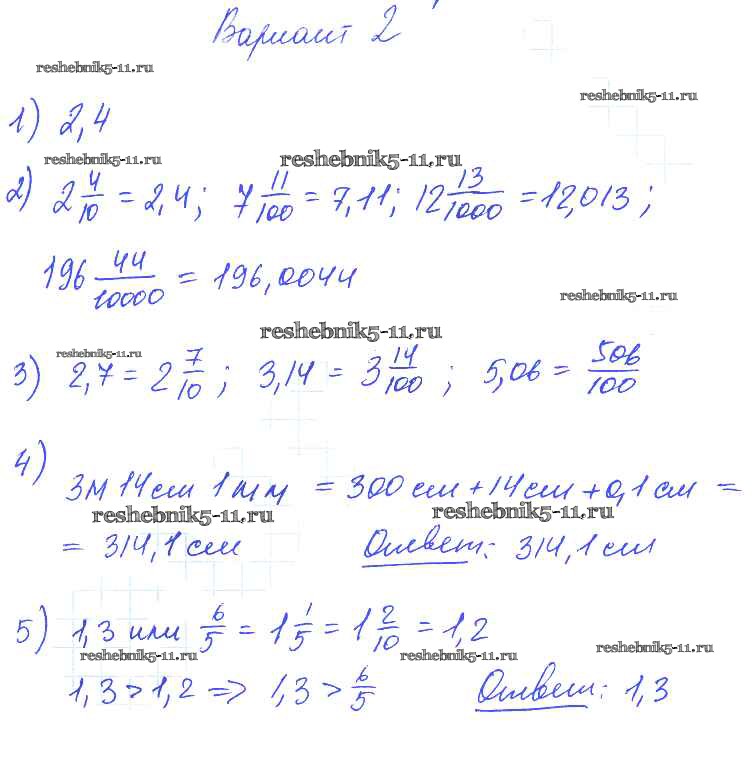 Вариант 2
reshebnik5-11.ru
reshebnik5-11.ru
1) 2,4
reshebnik5-11.ru reshebnik5-11.ru
2) 2 4/10 = 2,4; 7 11/100 = 7,11; 12 13/1000 = 12,013;
196 44/10000 = 196,0044
reshebnik5-11.ru
reshebnik5-11.ru
reshebnik5-11.ru
3) 2,7 = 2 7/10; 3,14 = 3 14/100; 5,06 = 506/100
4) 3м 14см 1мм = 300см + 14см + 0,1см =
reshebnik5-11.ru reshebnik5-11.ru
= 314,1см Ответ: 314,1см
5) 1,3 или 6/5 = 1 1/5 = 1 2/10 = 1,2
reshebnik5-11.ru reshebnik5-11.ru reshebnik5-11.ru
1,3 > 1,2 => 1,3 > 6/5 Ответ: 1,3